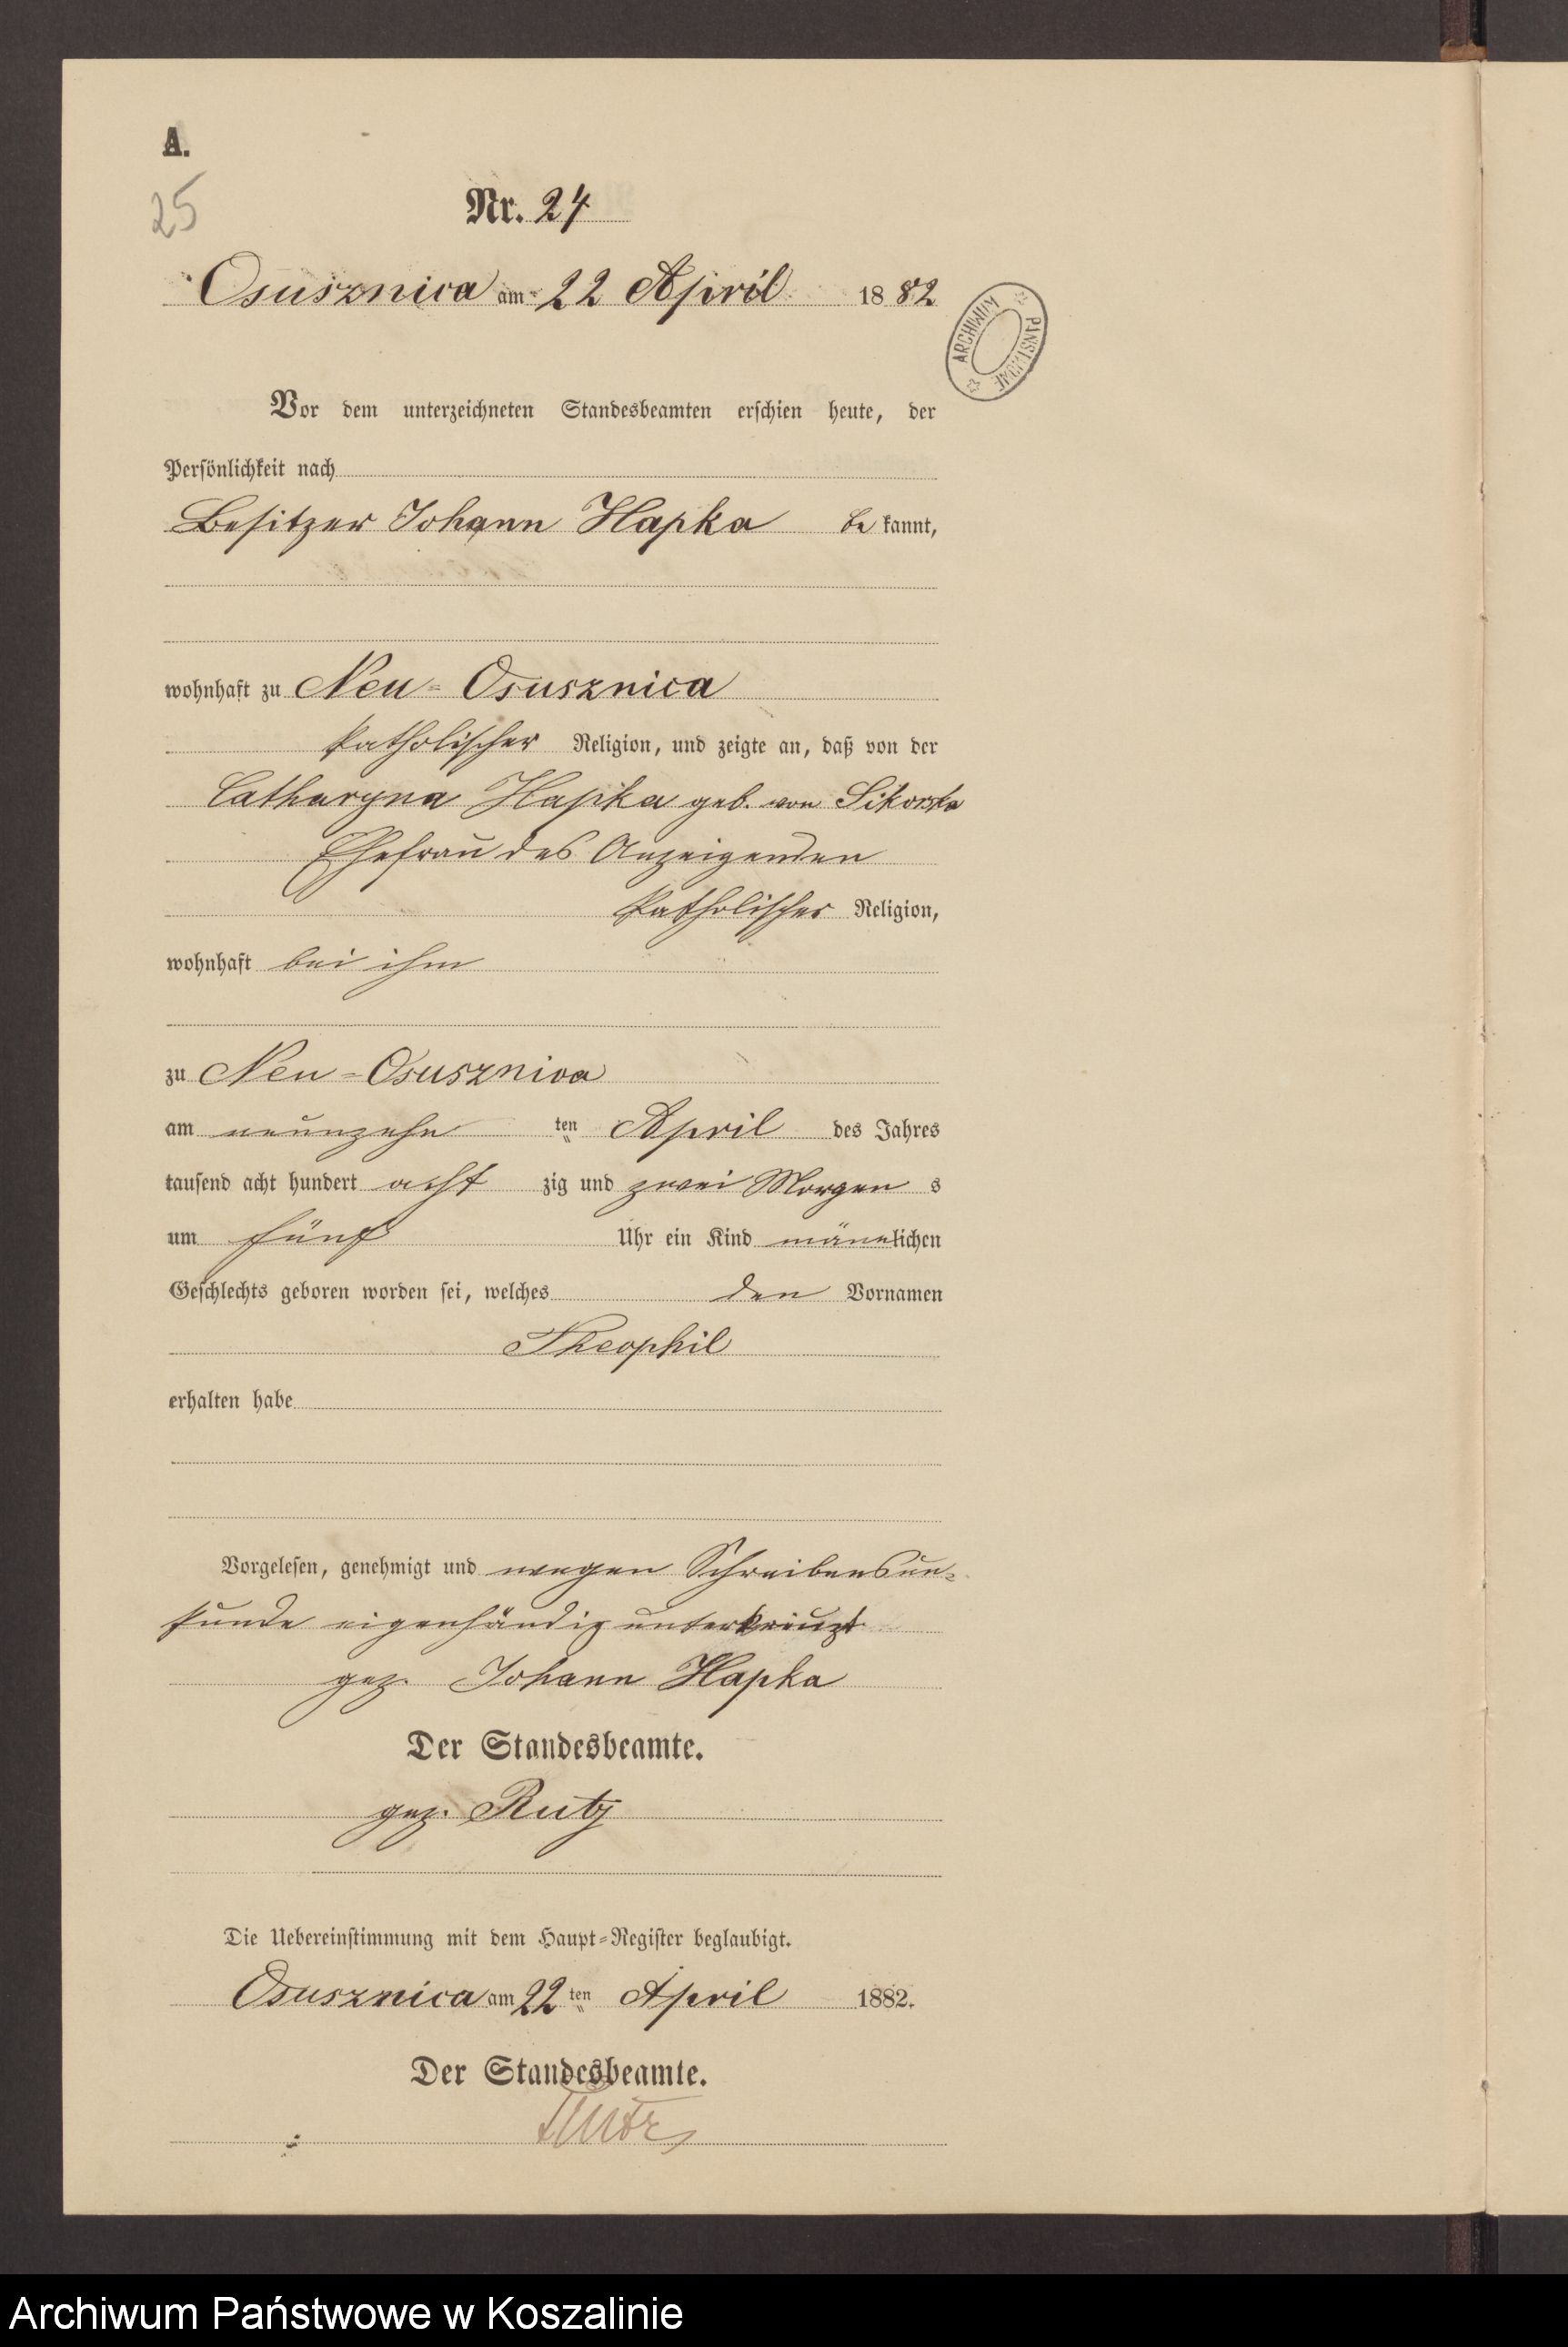 A.
25
Nr. 24
Osusznica am 22 April 1882
ARCHIWUM PAŃSTWOWE
Vor dem unterzeichneten Standesbeamten erschien heute, der
Persönlichkeit nach
Besitzer Johann Hapka be kannt,
wohnhaft zu Neu-Osusznica
katholischer Religion, und zeigte an, daß von der
Catharyna Hapka geb. von Sikorska
Ehefrau des Anzeigenden
katholischer Religion,
wohnhaft bei ihm
zu Neu-Osusznica
am neunzehn ten April des Jahres
tausend acht hundert acht zig und zwei Morgen s
um fünf Uhr ein Kind männlichen
Geschlechts geboren worden sei, welches den Vornamen
Theophil
erhalten habe
Vorgelesen, genehmigt und wegen Schreibensun-
kunde eigenhändig unterkreuzt
gez. Johann Hapka
Der Standesbeamte.
gez. Rutz
Die Uebereinstimmung mit dem Haupt-Register beglaubigt.
Osusznica am 22 ten April 1882.
Der Standesbeamte.
Rutz
Archiwum Państwowe w Koszalinie